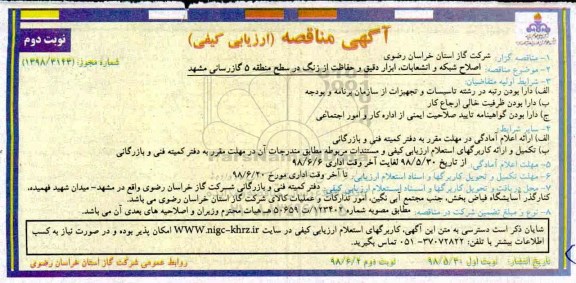 آگهی مناقصه (ارزیابی کیفی)
نوبت دوم
شماره مجوز: (۱۳۹۸/۳۱۴۳)
۱- مناقصه گزار: شرکت گاز استان خراسان رضوی
۲- موضوع مناقصه: اصلاح شبکه و انشعابات، ابزار دقیق و حفاظت از زنگ در سطح منطقه ۵ گازرسانی مشهد
۳- شرایط اولیه متقاضیان:
الف) دارا بودن رتبه در رشته تاسیسات و تجهیزات از سازمان برنامه و بودجه
ب) دارا بودن ظرفیت خالی ارجاع کار
ج) دارا بودن گواهینامه تایید صلاحیت ایمنی از اداره کار و امور اجتماعی
۴- سایر شرایط:
الف) ارائه اعلام آمادگی در مهلت مقرر به دفتر کمیته فنی و بازرگانی
ب) تکمیل و ارائه کاربرگهای استعلام ارزیابی کیفی و مستندات مربوطه مطابق مندرجات آن در مهلت مقرر به دفتر کمیته فنی و بازرگانی
۵- مهلت اعلام آمادگی: از تاریخ ۹۸/۵/۳۰ لغایت آخر وقت اداری ۹۸/۶/۶
۶- مهلت تکمیل و تحویل کاربرگها و اسناد استعلام ارزیابی: تا آخر وقت اداری مورخ ۹۸/۶/۲۰
۷- محل دریافت و تحویل کاربرگها و اسناد استعلام ارزیابی کیفی: دفتر کمیته فنی و بازرگانی شرکت گاز خراسان رضوی واقع در مشهد- میدان شهید فهمیده،
کنارگذر آسایشگاه فیاض بخش، جنب مجتمع آبی نگین، امور تدارکات و عملیات کالای شرکت گاز استان خراسان رضوی می باشد.
۸- نوع و مبلغ تضمین شرکت در مناقصه: مطابق مصوبه شماره ۱۲۳۴۰۲/ت ۵۰۶۵۹ ه هیات محترم وزیران و اصلاحیه های بعدی آن می باشد.
شایان ذکر است دسترسی به متن این آگهی، کاربرگهای استعلام ارزیابی کیفی در سایت WWW.nigc-khrz.ir امکان پذیر بوده و در صورت نیاز به کسب
اطلاعات بیشتر با تلفن: ۳۷۰۷۲۸۲۲- ۰۵۱ تماس بگیرید.
تاریخ انتشار: نوبت اول ۹۸/۵/۳۰ نوبت دوم ۹۸/۶/۲
روابط عمومی شرکت گاز استان خراسان رضوی